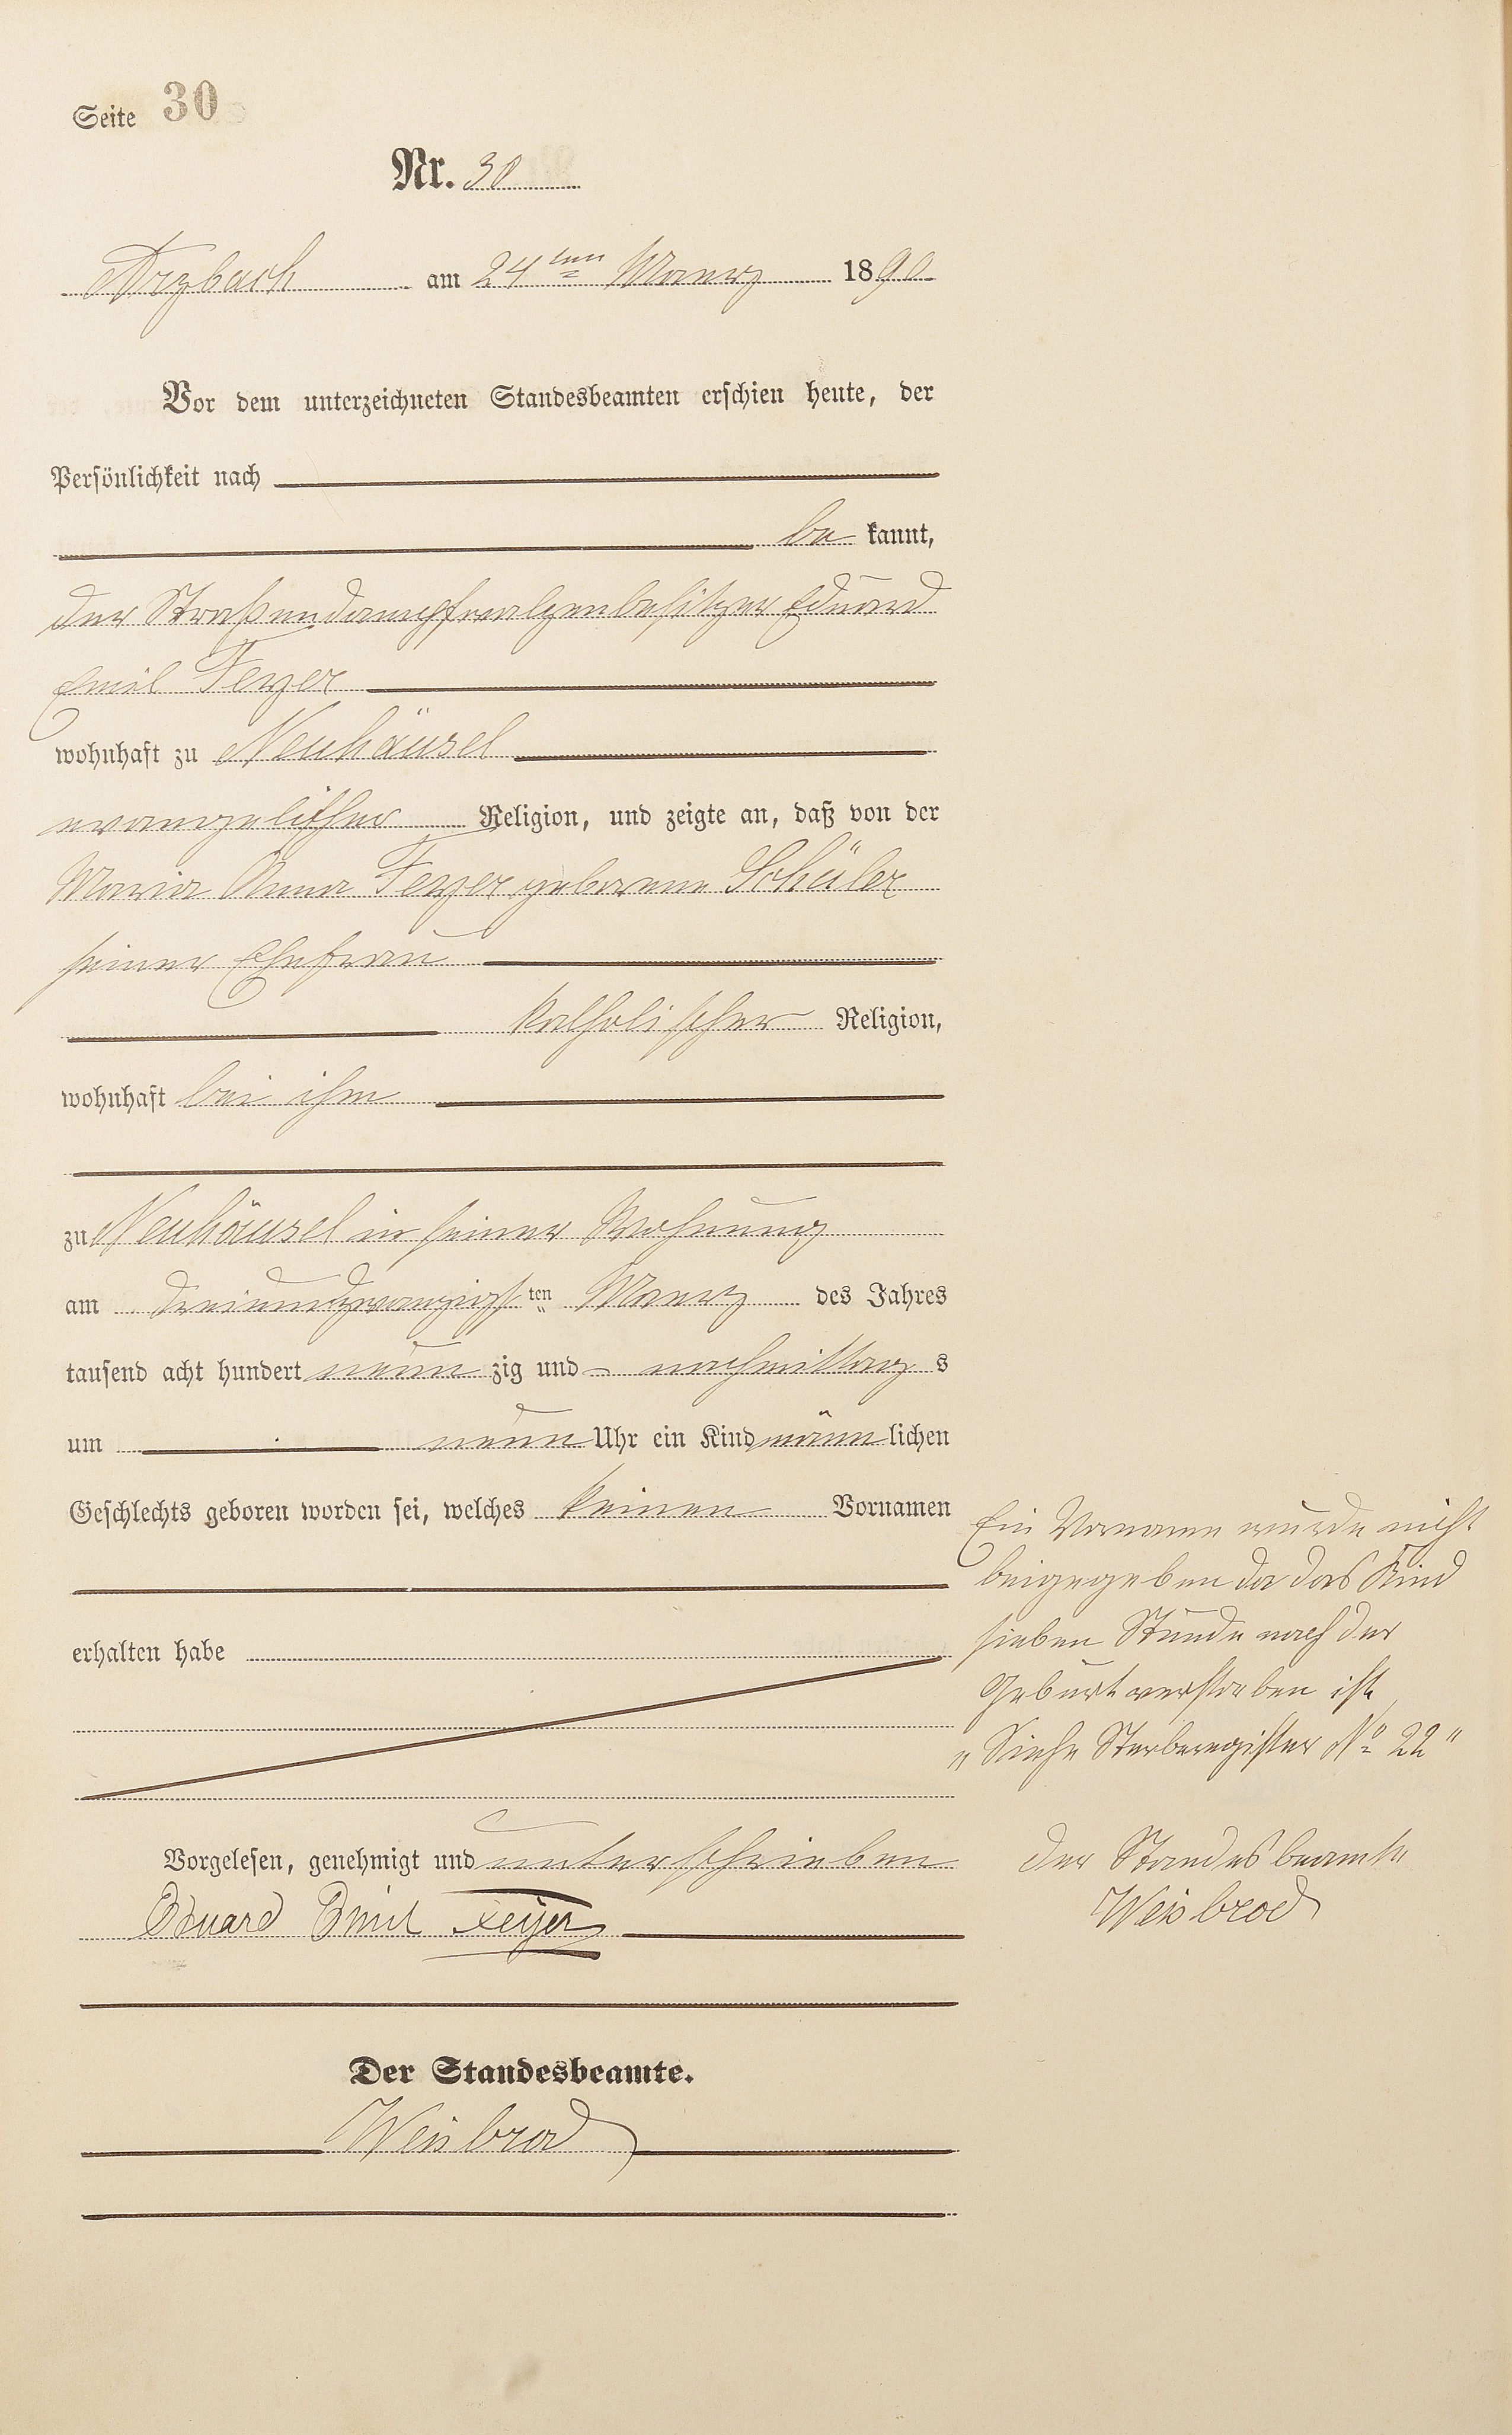 Seite 30
Nr. 30
Arzbach am 24ten Maerz 1890
Vor dem unterzeichneten Standesbeamten erschien heute, der
Persönlichkeit nach
be kannt,
der Straßendampfwalzenbesitzer Eduard
Emil Feyer
wohnhaft zu Neuhäusel
evangelischer Religion, und zeigte an, daß von der
Maria Anna Feyer geborene Schüler
seiner Ehefrau
katholischer Religion,
wohnhaft bei ihm
zu Neuhäusel in seiner Wohnung
am dreiundzwanzigsten Maerz des Jahres
tausend acht hundert neun zig und - nachmittag s
um neun Uhr ein Kind männ lichen
Geschlechts geboren worden sei, welches keinen Vornamen
erhalten habe
Ein Vorname wurde nicht
beigegeben da das Kind
sieben Stunde nach der
Geburt verstorben ist,
„Siehe Sterberegister No 22"
Der Standesbeamte
Weisbrod
Vorgelesen, genehmigt und unterschrieben
Eduard Emil Feijer
Der Standesbeamte.
Weisbrod